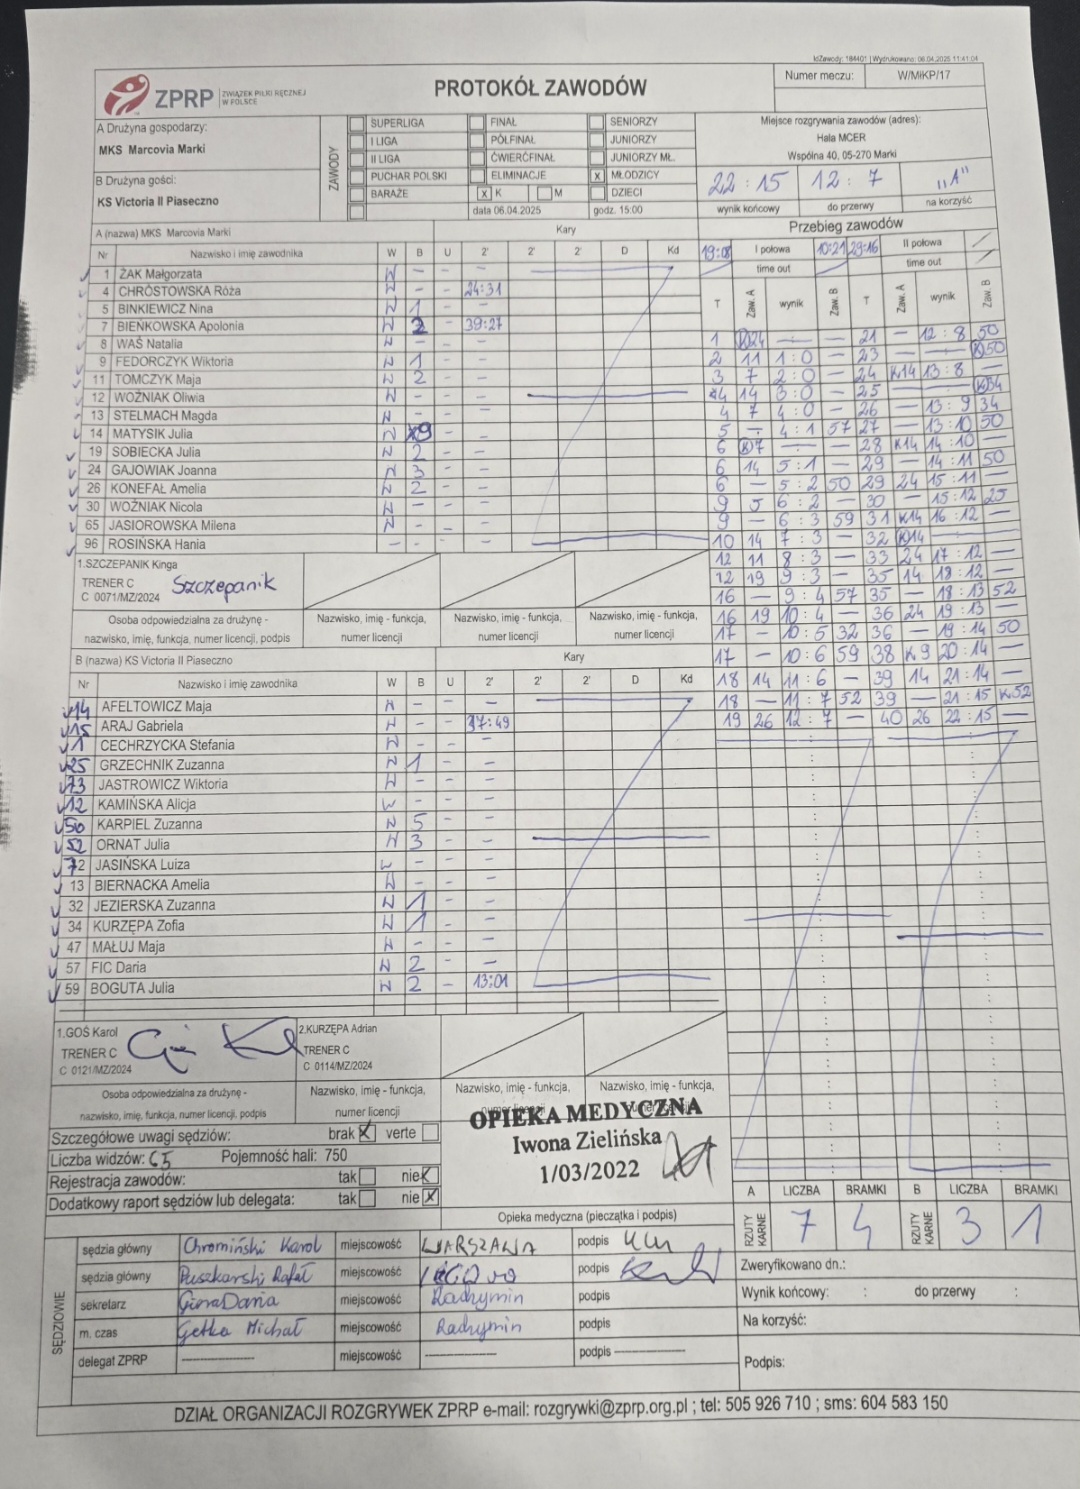 IdZawody: 184401 | Wydrukowano: 06.04.2025 11:41:04
ZPRP ZWIĄZEK PIŁKI RĘCZNEJ W POLSCE
PROTOKÓŁ ZAWODÓW
Numer meczu: W/MiKP/17
A Drużyna gospodarzy:
MKS Marcovia Marki
B Drużyna gości:
KS Victoria II Piaseczno
ZAWODY
SUPERLIGA FINAŁ SENIORZY
I LIGA PÓŁFINAŁ JUNIORZY
II LIGA ĆWIERĆFINAŁ JUNIORZY MŁ.
PUCHAR POLSKI ELIMINACJE x MŁODZICY
BARAŻE x K M DZIECI
data 06.04.2025 godz. 15:00
Miejsce rozgrywania zawodów (adres):
Hala MCER
Wspólna 40, 05-270 Marki
22:15 12:7 "A"
wynik końcowy do przerwy na korzyść
A (nazwa) MKS Marcovia Marki Kary
Nr Nazwisko i imię zawodnika W B U 2' 2' 2' D Kd
1 ŻAK Małgorzata W - - -
4 CHRÓSTOWSKA Róża W - - 24:31
5 BINKIEWICZ Nina W 1 - -
7 BIEŃKOWSKA Apolonia W 2 - 39:27
8 WAŚ Natalia W - - -
9 FEDORCZYK Wiktoria W 1 - -
11 TOMCZYK Maja W 2 - -
12 WOŹNIAK Oliwia W - - -
13 STELMACH Magda W - - -
14 MATYSIK Julia W 9 - -
19 SOBIECKA Julia W 2 - -
24 GAJOWIAK Joanna W 3 - -
26 KONEFAŁ Amelia W 2 - -
30 WOŹNIAK Nicola W - - -
65 JASIOROWSKA Milena W - - -
96 ROSIŃSKA Hania - - - -
1.SZCZEPANIK Kinga
TRENER C
C 0071/MZ/2024
Szczepanik
Osoba odpowiedzialna za drużynę -
nazwisko, imię, funkcja, numer licencji, podpis
Nazwisko, imię - funkcja, numer licencji
Nazwisko, imię - funkcja, numer licencji
Nazwisko, imię - funkcja, numer licencji
B (nazwa) KS Victoria II Piaseczno Kary
Nr Nazwisko i imię zawodnika W B U 2' 2' 2' D Kd
14 AFELTOWICZ Maja W - - -
15 ARAJ Gabriela W - - 37:49
1 CECHRZYCKA Stefania W - - -
25 GRZECHNIK Zuzanna W 1 - -
73 JASTROWICZ Wiktoria W - - -
12 KAMIŃSKA Alicja W - - -
50 KARPIEL Zuzanna W 5 - -
52 ORNAT Julia W 3 - -
72 JASIŃSKA Luiza W - - -
13 BIERNACKA Amelia W - - -
32 JEZIERSKA Zuzanna W 1 - -
34 KURZĘPA Zofia W 1 - -
47 MAŁUJ Maja W - - -
57 FIC Daria W 2 - -
59 BOGUTA Julia W 2 - 13:01
1.GOŚ Karol
TRENER C
C 0121/MZ/2024
2.KURZĘPA Adrian
TRENER C
C 0114/MZ/2024
Osoba odpowiedzialna za drużynę -
nazwisko, imię, funkcja, numer licencji, podpis
Nazwisko, imię - funkcja, numer licencji
Nazwisko, imię - funkcja,
Nazwisko, imię - funkcja,
OPIEKA MEDYCZNA
Iwona Zielińska
1/03/2022
Szczegółowe uwagi sędziów: brak X verte
Liczba widzów: 65 Pojemność hali: 750
Rejestracja zawodów: tak nie X
Dodatkowy raport sędziów lub delegata: tak nie X
Opieka medyczna (pieczątka i podpis)
SĘDZIOWIE
sędzia główny Chromiński Karol miejscowość WARSZAWA podpis
sędzia główny Puszkarski Rafał miejscowość podpis
sekretarz Góra Daria miejscowość Radzymin podpis
m. czas Getka Michał miejscowość Radzymin podpis
delegat ZPRP miejscowość podpis
Przebieg zawodów
19:08 I połowa 10:21 29:16 II połowa
time out time out
T Zaw. A wynik Zaw. B T Zaw. A wynik Zaw. B
1 (K)24 — — 21 — 12:8 50
2 11 1:0 — 23 — — (K)50
3 7 2:0 — 24 K14 13:8 —
4 14 3:0 — 25 — — (K)34
4 7 4:0 — 26 — 13:9 34
5 — 4:1 57 27 — 13:10 50
6 (K)7 — — 28 K14 14:10 —
6 14 5:1 — 29 — 14:11 50
6 — 5:2 50 29 24 15:11 —
9 5 6:2 — 30 — 15:12 25
9 — 6:3 59 31 K14 16:12 —
10 14 7:3 — 32 (K)14 —
12 11 8:3 — 33 24 17:12 —
12 19 9:3 — 35 14 18:12 —
16 — 9:4 57 35 — 18:13 52
16 19 10:4 — 36 24 19:13 —
17 — 10:5 32 36 — 19:14 50
17 — 10:6 59 38 K9 20:14 —
18 14 11:6 — 39 14 21:14 —
18 — 11:7 52 39 — 21:15 K52
19 26 12:7 — 40 26 22:15 —
A LICZBA BRAMKI B LICZBA BRAMKI
RZUTY KARNE 7 4 RZUTY KARNE 3 1
Zweryfikowano dn.:
Wynik końcowy: : do przerwy :
Na korzyść:
Podpis:
DZIAŁ ORGANIZACJI ROZGRYWEK ZPRP e-mail: rozgrywki@zprp.org.pl ; tel: 505 926 710 ; sms: 604 583 150